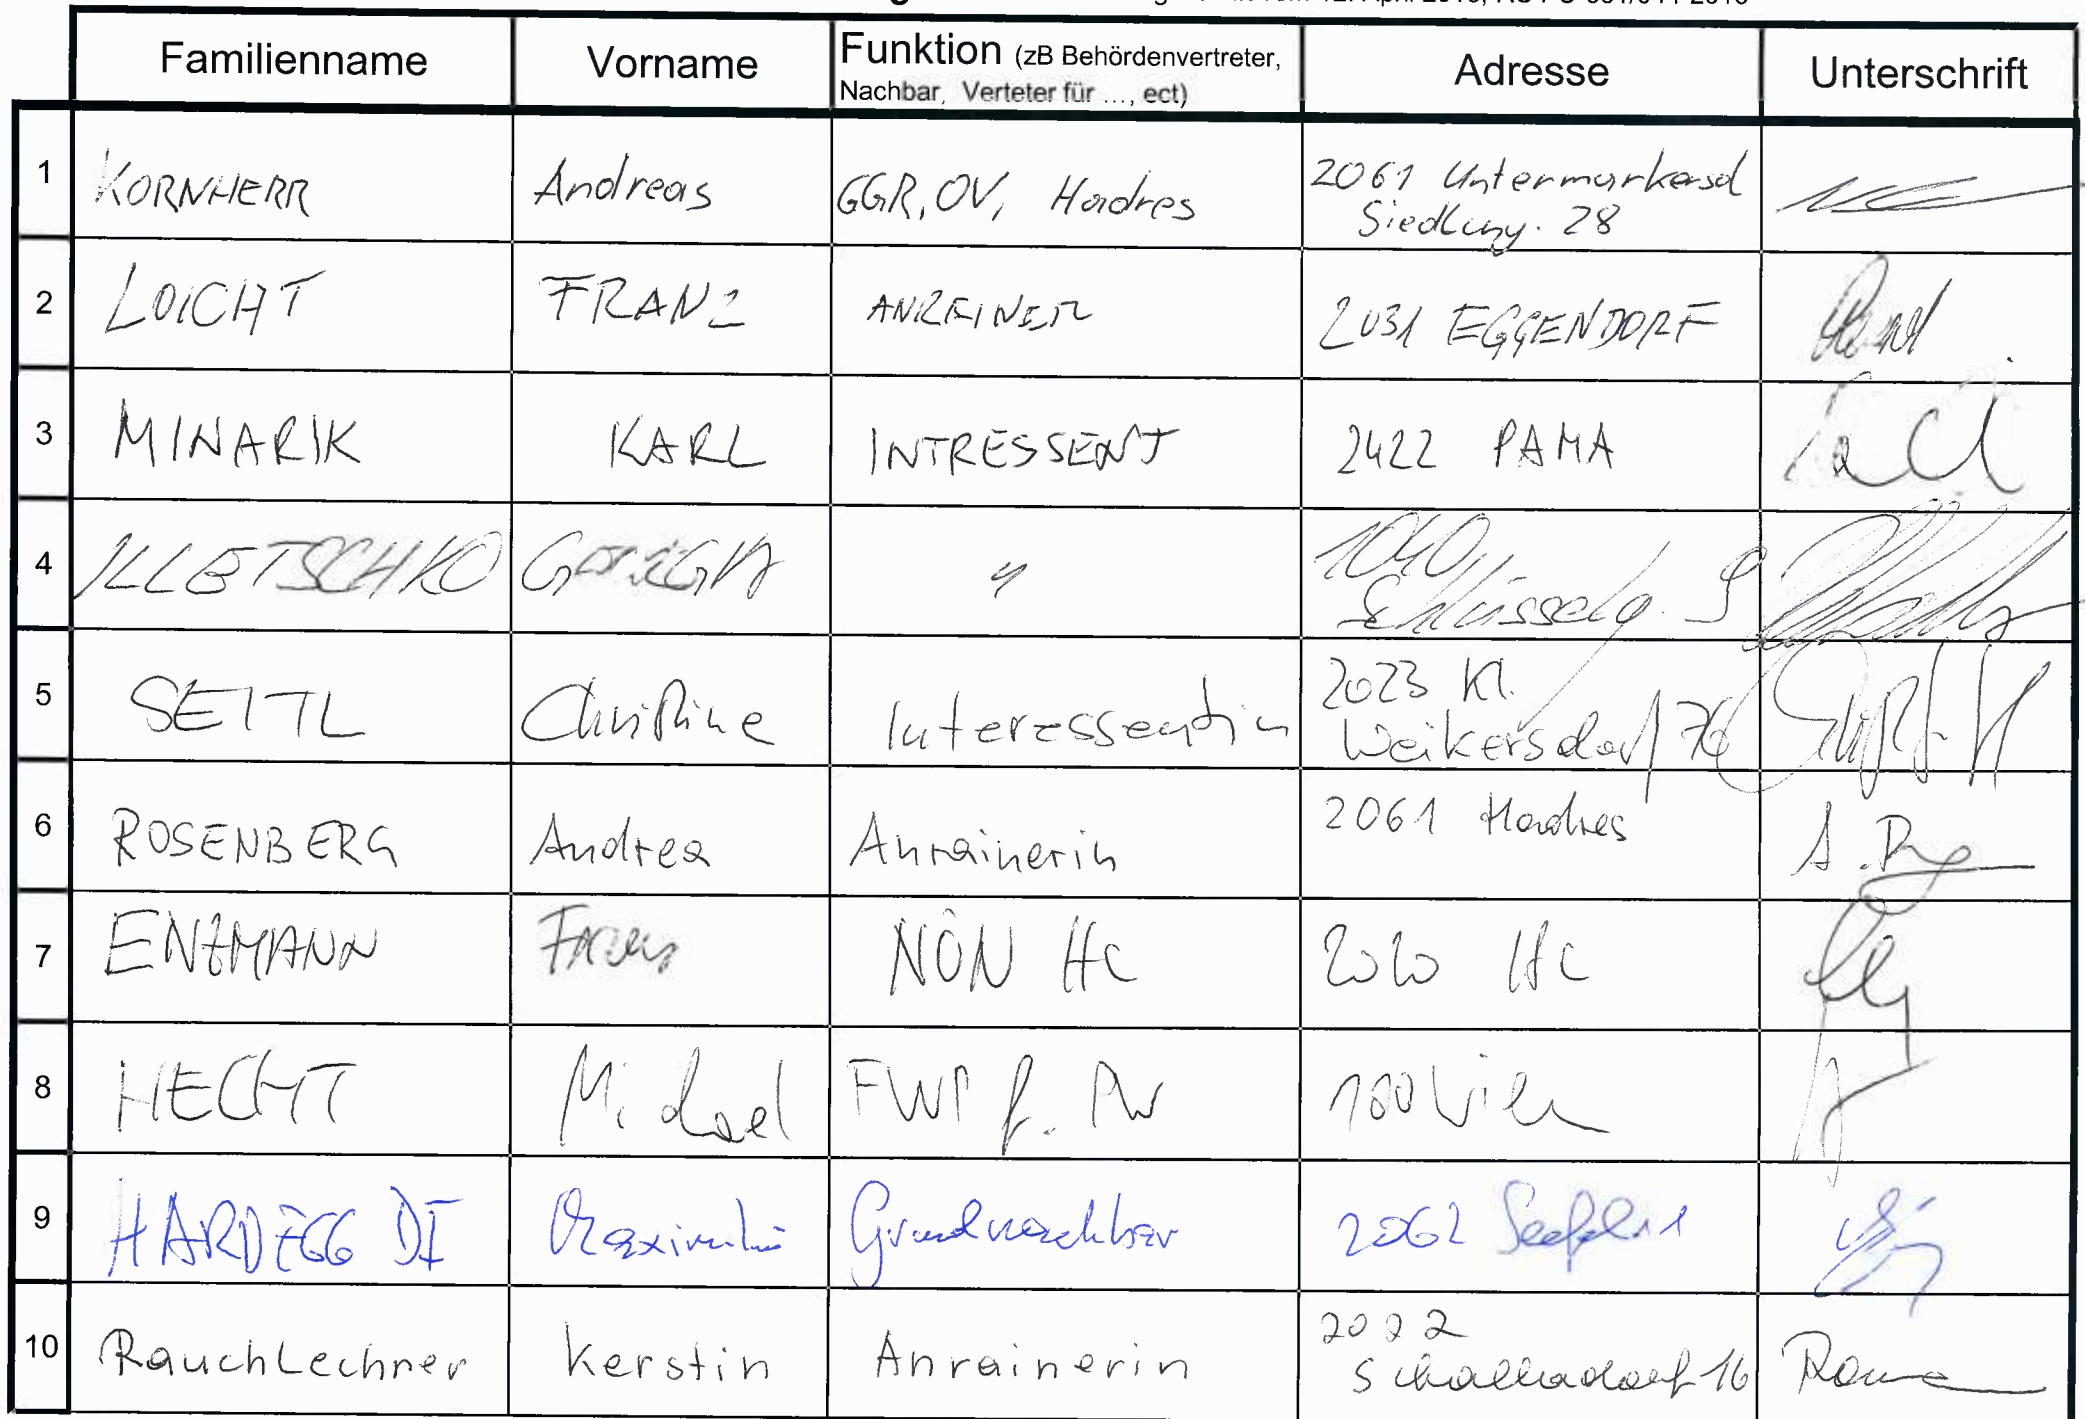 Familienname Vorname Funktion (zB Behördenvertreter, Nachbar, Verteter für ..., ect) Adresse Unterschrift
1 KORNHERR Andreas GGR, OV, Hadres 2061 Untermarkersd
Siedlung. 28
2 LOICHT FRANZ ANREINER 2031 EGGENDORF
3 MINARIK KARL INTRESSENT 2422 PAMA
4 KLETSCHKO " 1040
Schlüsselg. 9
5 SEITL Christine Interessentin 2023 Kl.
Weikersdorf 76
6 ROSENBERG Andrea Anrainerin 2061 Hadres
7 ENZMANN NÖN HL 2020 HL
8 HECHT Michael FWP f. PW Wien
9 HARDEGG DI Maximilian Grundnachbar 2062 Seefeld 1
10 RauchLechner Kerstin Anrainerin 2022
Schalladorf 16